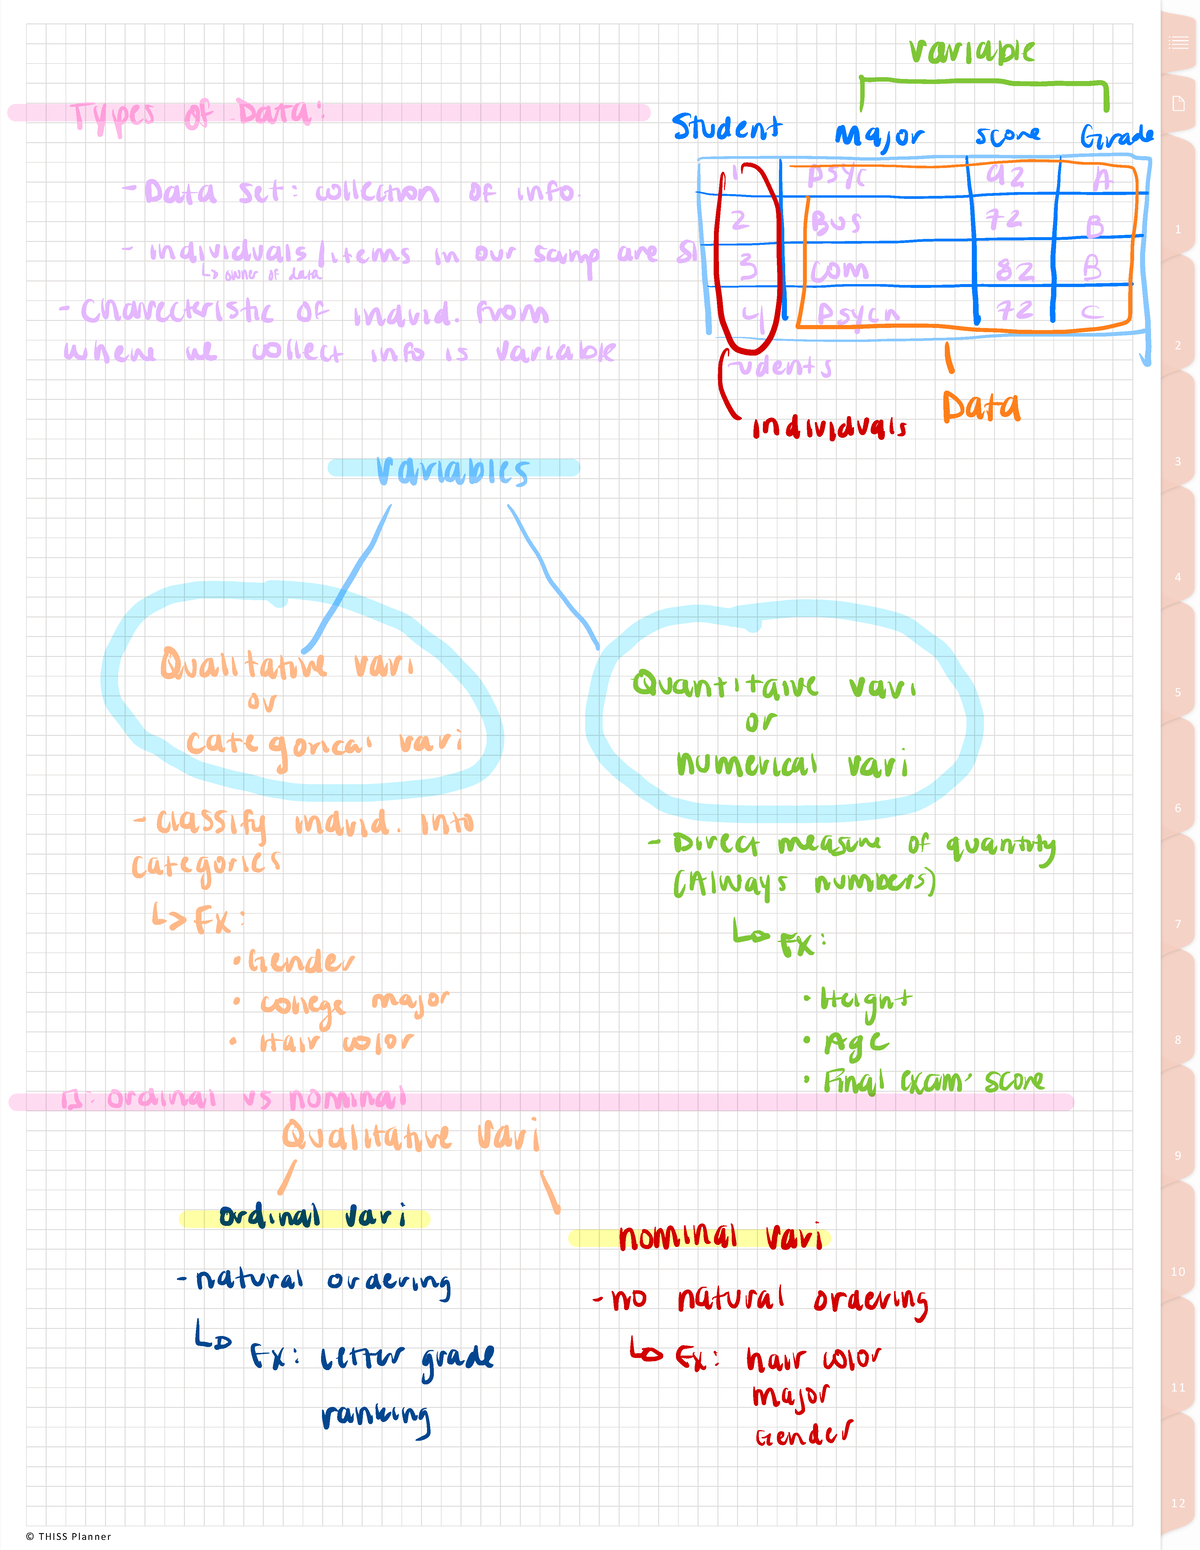 Variable
Types of Data:
Student Major score Grade
1 psyc 92 A
2 Bus 72 B
3 com 82 B
4 psych 72 C
- Data set: collection of info.
- individuals/items in our samp are St
udents
↳ owner of data
- Charecteristic of individ. from
where we collect info is variable
individuals
Data
Variables
Qualitative vari
or
categorical vari
Quantitaive vari
or
numerical vari
- Classify individ. into
categories
↳ Ex:
• Gender
• college major
• Hair color
- Direct measure of quantity
(Always numbers)
↳ Ex:
• Height
• Age
• Final exam score
: ordinal vs nominal
Qualitative Vari
ordinal vari
- natural ordering
↳ Ex: letter grade
ranking
nominal vari
- no natural ordering
↳ Ex: hair color
major
Gender
1
2
3
4
5
6
7
8
9
10
11
12
© THISS Planner